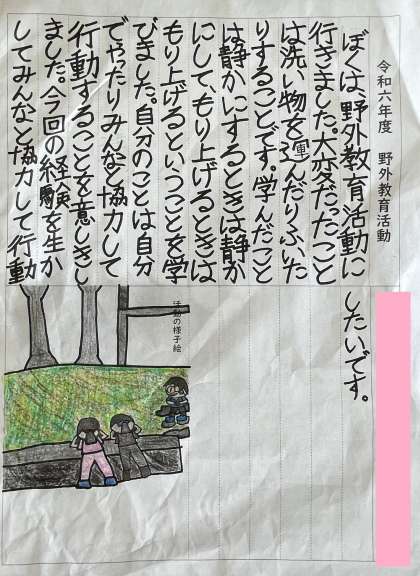 令和六年度　野外教育活動
ぼくは、野外教育活動に
行きました。大変だったこと
は洗い物を運んだりふいた
りすることです。学んだこと
は静かにするときは静か
にして、もり上げるときは
もり上げるということを学
びました。自分のことは自分
でやったりみんなと協力して
行動することを意しきし
ました。今回の経験を生か
してみんなと協力して行動
したいです。
活動の様子絵